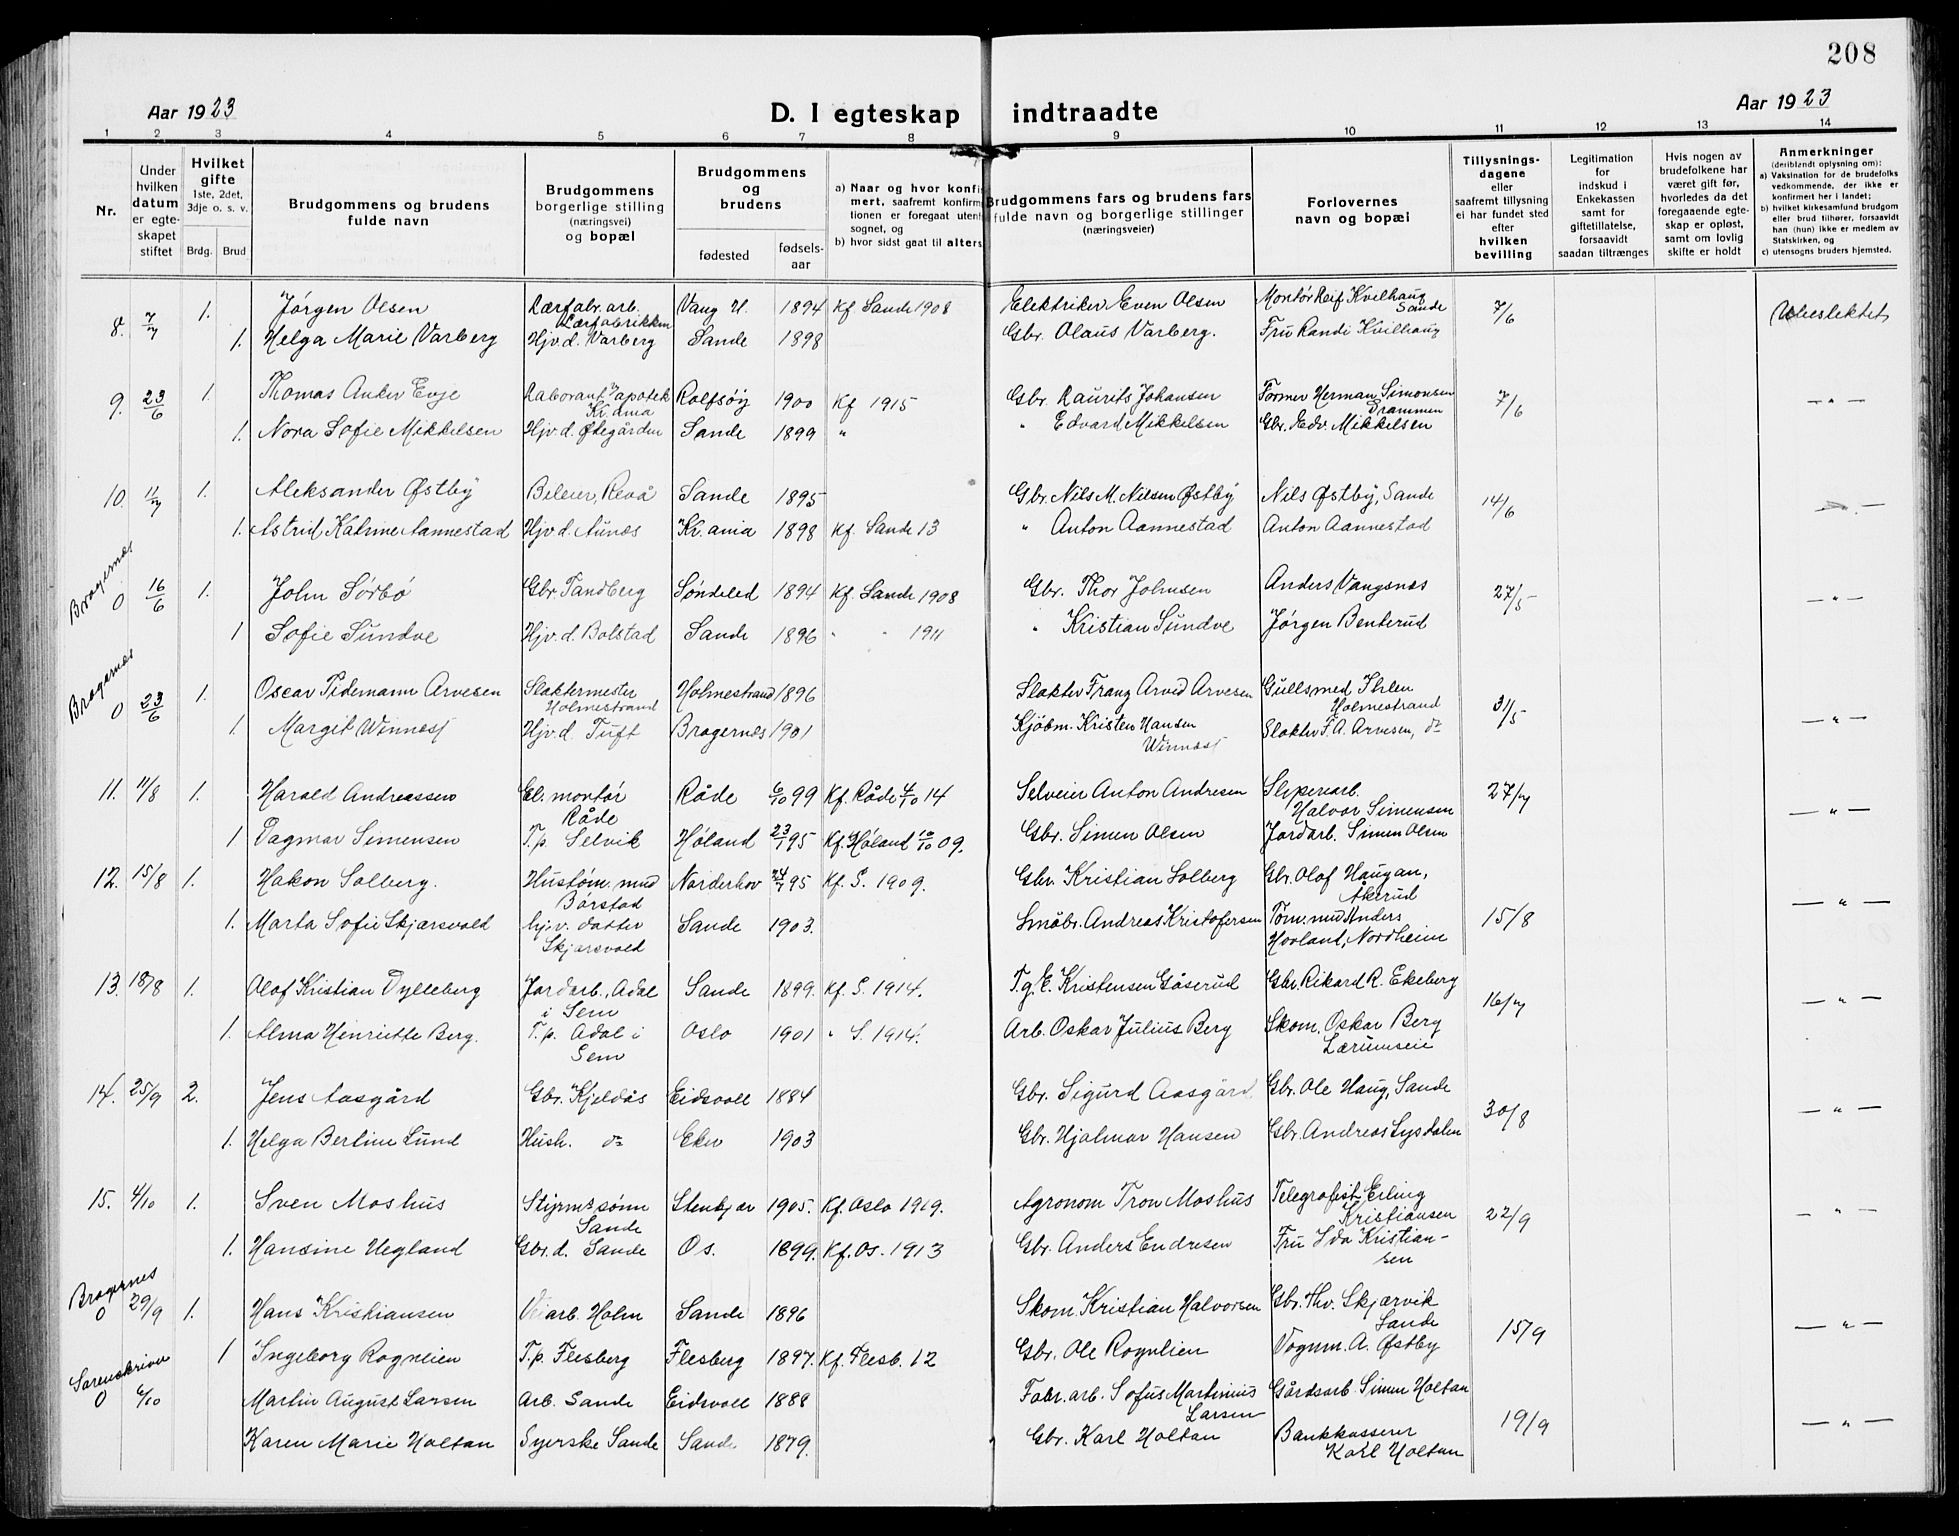 208
Aar 1923
D. I egteskap indtraadte
Aar 1923
1 2 3 4 5 6 7 8 9 10 11 12 13 14
Nr.
Under hvilken datum er egteskapet stiftet
Hvilket gifte 1ste, 2det, 3dje o. s. v.
Brdg. Brud
Brudgommens og brudens fulde navn
Brudgommens borgerlige stilling (næringsvei) og bopæl
Brudgommens og brudens
fødested
fødselsaar
a) Naar og hvor konfi
mert, saafremt konfirm
tionen er foregaat uten
sognet, og
b) hvor sidst gaat til alters
Brudgommens fars og brudens fars
fulde navn og borgerlige stillinger
(næringsveier)
Forlovernes navn og bopæl
Tillysningsdagene eller saafremt tillysning ei har fundet sted efter hvilken bevilling
Legitimation for indskud i Enkekassen samt for giftetillatelse, forsaavidt saadan tiltrænges
Hvis nogen av brudefolkene har været gift før, hvorledes da det foregaaende egteskap er opløst, samt om lovlig skifte er holdt
Anmerkninger
(deriblandt oplysning om):
a) Vaksination for de brudefolks vedkommende, der ikke er konfirmert her i landet;
b) hvilket kirkesamfund brudgom eller brud tilhører, forsaavidt han (hun) ikke er medlem av Statskirken, og
c) utensogns bruders hjemsted.
8. 7/7 1. Jørgen Olsen Lærfabr. arb. Lærfabrikken Vang H. 1894 Kf Sande 1908 Elektriker Even Olsen Montør Leif Kvilhaug Sande 7/6 Ubeslektet
1. Helga Marie Varberg Hjv. d. Varberg Sande 1898 Gbr. Olaus Varberg. Fru Randi Kvilhaug
9. 23/6 1. Thomas Anker Evje Laborant v/apotek Kr.ania Rolfsøy 1900 Kf 1915 Gbr. Laurits Johansen Former Herman Simonsen Drammen 7/6 — " —
1. Nora Sofie Mikkelsen Hjv. d. Ødegården Sande 1899 " " Edvard Mikkelsen Gbr. Edv. Mikkelsen
10. 11/7 1. Aleksander Østby Bileier, Revå Sande 1895 Gbr. Nils M. Nilsen Østby Nils Østby, Sande 14/6 — " —
1. Astrid Katrine Aannestad Hjv. d. Aunæs Kr.ania 1898 Kf. Sande 13 " Anton Aannestad Anton Aannestad
Bragernæs
0 16/6 1. John Sørbø Gbr. Tandberg Søndeled 1894 Kf. Sande 1908 Gbr. Thor Johnsen Anders Vangsnæs 27/5 — " —
1 Sofie Sundve Hjv. d. Bolstad Sande 1896 " " 1911 " Kristian Sundve Jørgen Benterud
Bragernæs
0 23/6 1. Oscar Tidemann Arvesen Slaktermester Holmestrand Holmestrand 1896 Slakter Franz Arvid Arvesen Gullsmed Ihlen Holmestrand 31/5 — " —
1 Margit Winnæss Hjv. d. Tuft Bragernes 1901 Kjöbm. Kristen Hansen Winnæss Slakter F. A. Arvesen, do
11. 11/8 1. Harald Andreassen El. montør Råde Råde 6/10 99 Kf. Råde 4/10 14 Selveier Anton Andresen Sliperiarb. Halvor Simensen 27/7 — " —
1 Dagmar Simensen T.p. Selvik Høland 23/1 95 Kf. Høland 10/10 09. Gbr. Simen Olsen Jordarb. Simen Olsen
12. 15/8 1. Hakon Solberg. Hustøm. mud Borstad Norderhov 24/7 95 Kf. S. 1909. Gbr. Kristian Solberg Gbr. Olof Haugan, Åkerud — " —
1. Marta Sofie Skjærsvold hjv. datter Skjærsvold Sande 1903. Småbr. Andreas Kristofersen Tøm. mud Anders Hovland, Nordheim 15/8
13. 18/8 1. Olof Kristian Dylleberg Jordarb., Adal i Sem Sande 1899. Kf. S. 1914. T.g. E. Kristensen Gåserud Gbr. Rikard R. Ekeberg 16/7 — " —
1. Alma Henriette Berg. T.p. Adal i Sem Oslo 1901 " S. 1914. Arb. Oskar Julius Berg Skom. Oskar Berg Lærumseie
14. 25/9 2. Jens Aasgård Gbr. Kjeldås Eidsvoll 1884 Gbr. Sigurd Aasgård Gbr. Ole Haug, Sande 30/8 — " —
1. Helga Bertine Lund Hush. do Eker 1903 Gbr. Hjalmar Hansen Gbr. Andreas Lysdalen
15. 4/10 1. Sven Moshus Styrms sønn Sande Stenkjær 1905. Kf. Oslo 1919. Agronom Tron Moshus Telegrafist Erling Kristiansen 22/9 — " —
1. Hansine Uegland Gbr. d. Sande Os. 1899. Kf. Os. 1913 Gbr. Anders Endresen Fru Ida Kristiansen
Bragernes
0 29/9 1. Hans Kristiansen Veiarb. Holm Sande 1896 Skom. Kristian Halvorsen Gbr. Thv. Skjærvik Sande 15/9 — " —
1 Ingeborg Rognlien T.p. Flesberg Flesberg 1897. Kf. Flesb. 12 Gbr. Ole Rognlien Vognm. A. Østby
Sorenskriver
0 6/10 Martin August Larsen Arb. Sande Eidsvoll 1888 Fabr. arb. Sofus Martinius Larsen Gårdsarb. Simen Holtan 19/9 — " —
Karen Marie Holtan Syerske Sande Sande 1879. Gbr. Karl Holtan Bankkasserer Karl Holtan